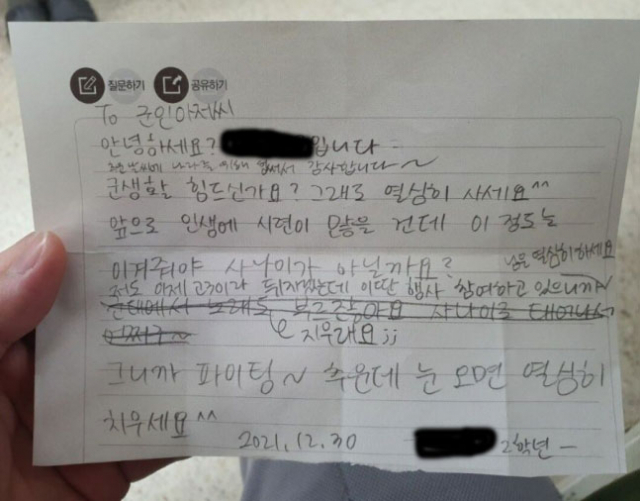 질문하기 공유하기
To 군인아저씨
안녕하세요? 입니다
추운날씨에 나라를 위해 힘써서 감사합니다~
군생활 힘드신가요? 그래도 열심히 사세요^^
앞으로 인생에 시련이 많을 건데 이 정도는
이겨줘야 사나이가 아닐까요?
저도 이제 고3이라 뒤지겠는데 이딴 행사 참여하고 있으니까~
님은 열심히하세요
군대에서 노래도 부르잖아요 사나이로 태어나서
지우래요;;
그니까 파이팅~ 추운데 눈 오면 열심히
치우세요^^
2021.12.30 2학년 -